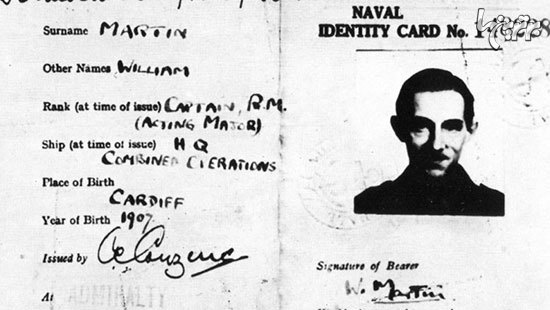 Surname MARTIN
Other Names WILLIAM
Rank (at time of issue) CAPTAIN, R.M.
(ACTING MAJOR)
Ship (at time of issue) H Q
COMBINED OPERATIONS
Place of Birth
CARDIFF
Year of Birth 1907
Issued by
At ADMIRALTY
NAVAL
IDENTITY CARD No.
Signature of Bearer
W. Martin